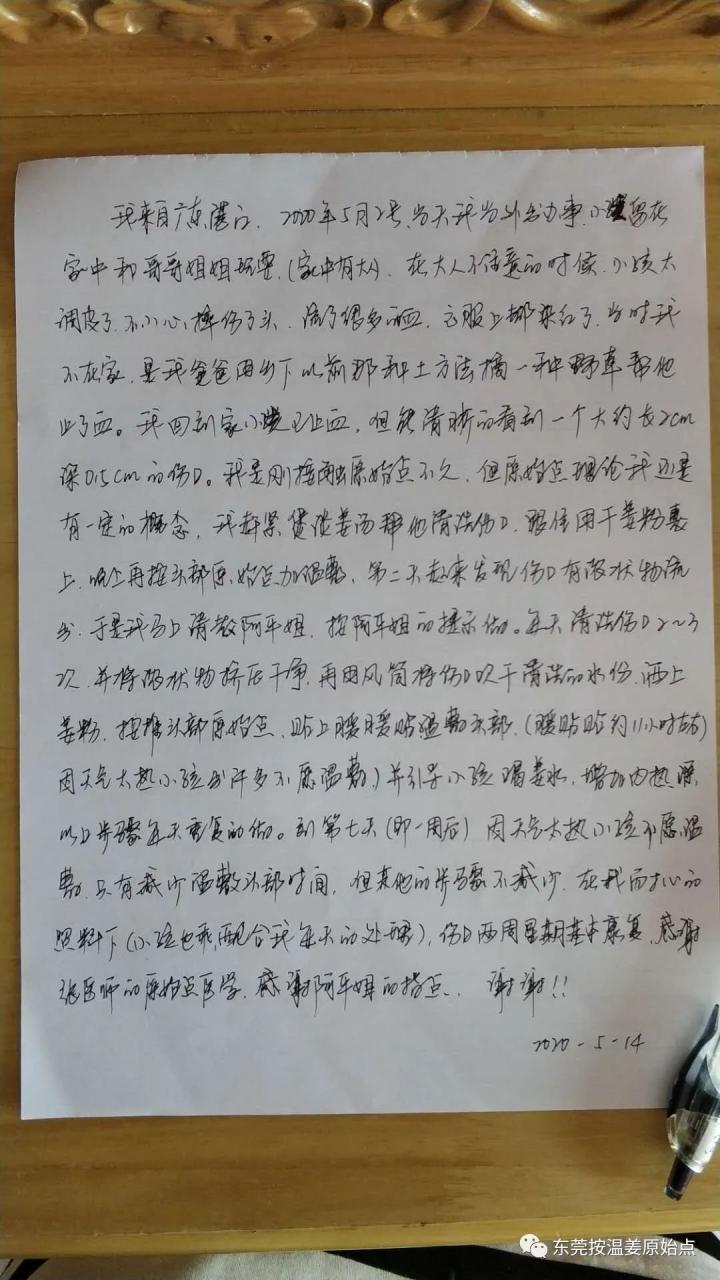 我来自广东湛江，2020年5月2号，当天我当外出办事，小孩留在
家中和哥哥姐姐玩耍，(家中有大人)，在大人不注意的时候，小孩太
调皮了，不小心摔伤了头，流了很多血，衣服上都染红了，当时我
不在家，是我爸爸用乡下以前那种土方法摘一种野草帮他
止了血。我回到家小孩已止血，但能清晰的看到一个大约长2cm
深0.5cm的伤口。我是刚接触原始点不久，但原始点理论我还是
有一定的概念，我赶紧煲浓姜汤帮他清洗伤口，跟住用干姜粉裹
上，晚上再按头部原始点加温敷，第二天起来发现伤口有脓状物流
出，于是我马上请教阿平姐，按阿平姐的提示做。每天清洗伤口2～3
次，并将脓状物挤压干净，再用风筒将伤口吹干清洗的水份，洒上
姜粉，按推头部原始点，贴上暖暖贴温敷头部，(暖贴贴约11小时左右)
因天气太热小孩出汗多不愿温敷)并引导小孩喝姜水，增加内热源，
以上步骤每天重复的做。到第七天(即一周后)因天气太热小孩不愿温
敷，只有减少温敷头部时间，但其他的步骤不减少，在我耐心的
照料下(小孩也乖，配合我每天的处理)，伤口两周星期基本康复，感谢
张医师的原始点医学，感谢阿平姐的指点，谢谢!!
2020-5-14
东莞按温姜原始点